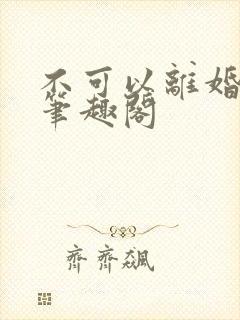 不可以離婚
筆趣閣
齊齊飆